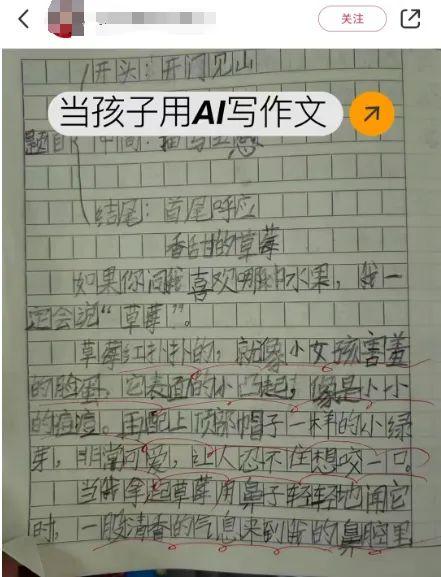 关注
开头：开门见山
当孩子用AI写作文
题目
中间：描写五感
结尾：首尾呼应
香甜的草莓
如果你问我喜欢哪种水果，我一
定会说“草莓”。
草莓红扑扑的，就像小女孩害羞
的脸蛋，它表面的小凸起，像是小小
的痘痘。再配上顶部帽子一样的小绿
芽，非常可爱，让人忍不住想咬一口。
当我拿起草莓用鼻子轻轻地闻它
时，一股清香的气息来到我的鼻腔里